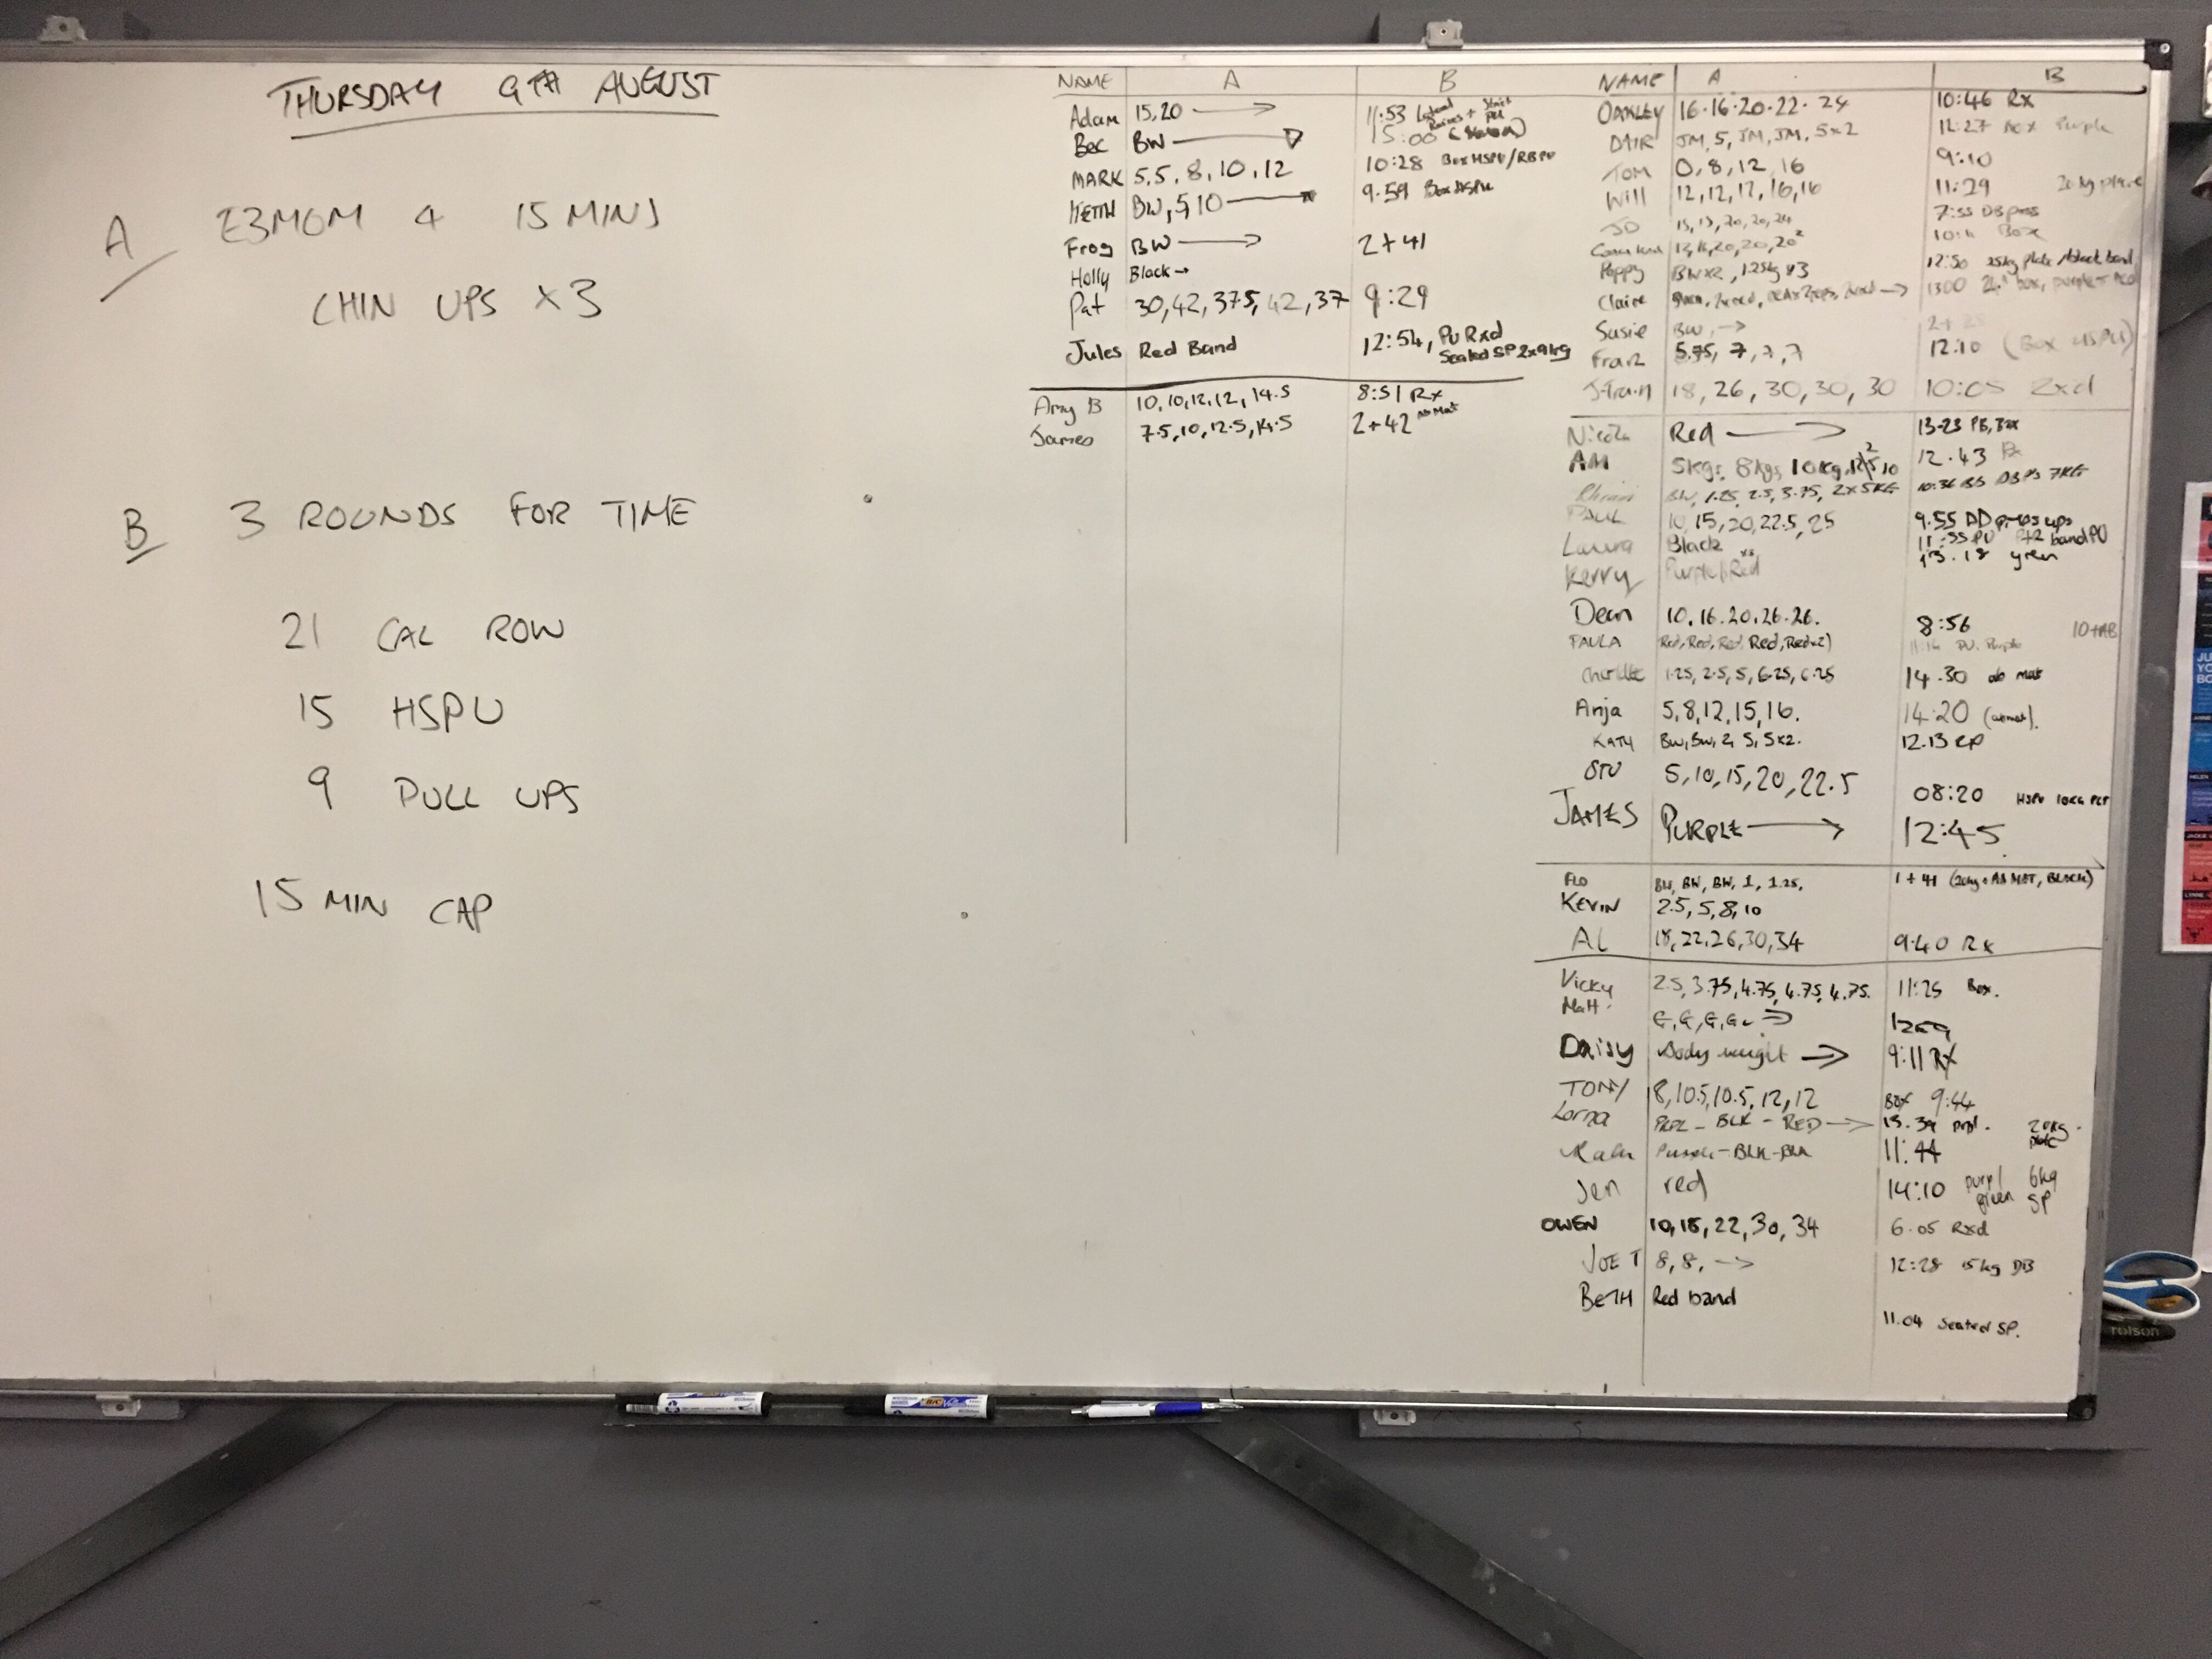 THURSDAY 9TH AUGUST
A E3MOM 4 15 MINS
CHIN UPS x3
B 3 ROUNDS FOR TIME
21 CAL ROW
15 HSPU
9 PULL UPS
15 MIN CAP
NAME A B
Adam 15,20 → 11:53 Lateral Raises + Strict PU
Bec BW → 15:00
MARK 5,5,8,10,12 10:28 Box HSPU/RBPU
KEITH BW,5,10 → 9.59 Box HSPU
Frog BW → 2+41
Holly Black →
Pat 30,42,37.5,42,37 9:29
Jules Red Band 12:54, PU Rxd
Seated SP 2x9kg
Amy B 10,10,12,12,14.5 8:51 Rx
James 7.5,10,12.5,14.5 2+42 no Mat
NAME A B
OAKLEY 16·16·20·22·24 10:46 Rx
DAIR JM, 5, JM, JM, 5x2 12:27 Box Purple
TOM 0,8,12,16 9:10
Will 12,12,12,16,16 11:29 20kg plate
JD 15,15,20,20,24 7:55 DB press
20,20,20² Box
Poppy BWx2, 1.25kg x3 12:50 25kg plate/black band
Claire → 1300 box, purple + red
Susie BW, → 2+
Fraz 5.75, 7, 7, 7 12:10 (Box HSPU)
J-Train 18, 26, 30, 30, 30 10:05 Rxd
Nicola Red → 13·23 PB, Box
AM 5kgs, 8kgs, 10kg, 12.43 Rx
BW, 1.25, 2.5, 3.75, 2x5KG 10:36 DB Ps 7KG
PAUL 10, 15, 20, 22.5, 25 9.55 DD press ups
Laura Black 11:55 PU band PU
Kerry Purple/Red 13.18 green
Dean 10, 16. 20, 26. 26. 8:56 10+AB
PAULA Red, Red, Red, Red, Redx2) PU. Purple
Charlotte 1.25, 2.5, 5, 6.25, 6.25 14.30 ab mat
Anja 5, 8, 12, 15, 16. 14.20 (abmat).
KATY BW, BW, 2, 5, 5x2. 12.13
STU 5, 10, 15, 20, 22.5 08:20 HSPU 10KG PLT
JAMES PURPLE → 12:45
FLO BW, BW, BW, 1, 1.25, 1+41 (20kg + AB MAT, BLACK)
KEVIN 2.5, 5, 8, 10
AL 18, 22, 26, 30, 34 9.40 Rx
Vicky 2.5, 3.75, 4.75, 4.75, 4.75. 11:25 Box.
Matt. G, G, G, G → 1259
Daisy Body weight → 9:11 Rx
TONY 8, 10.5, 10.5, 12, 12 Box 9:44
Lorna PRPL - BLK - RED → 13.39 prpl. 20kg. plate
Purple - BLK - BLK 11:44
Jen red 14:10 purpl green 6kg SP
OWEN 10, 18, 22, 30, 34 6.05 Rxd
JOE T 8, 8, → 12:28 15kg DB
BETH Red band
11.04 Seated SP.
BIC
rolson